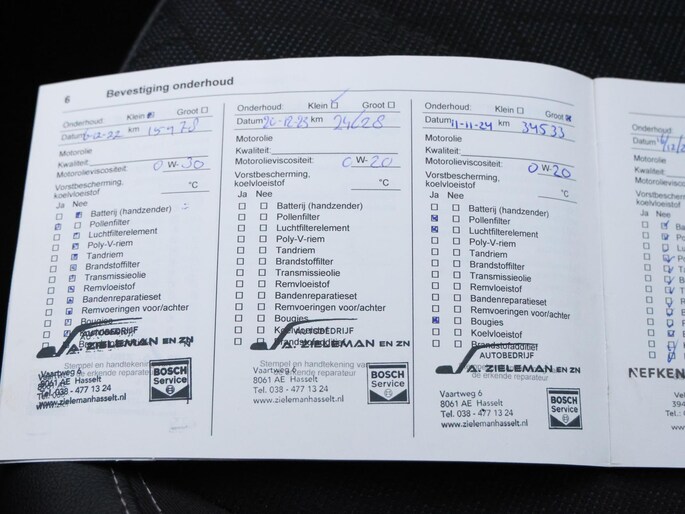 6 Bevestiging onderhoud
Onderhoud: Klein Groot
Datum 6-12-22 km
Motorolie
Kwaliteit:
Motorolieviscositeit: 0 W-30
Vorstbescherming, °C
koelvloeistof
Ja Nee
Batterij (handzender)
Pollenfilter
Luchtfilterelement
Poly-V-riem
Tandriem
Brandstoffilter
Transmissieolie
Remvloeistof
Bandenreparatieset
Remvoeringen voor/achter
Bougies
AUTOBEDRIJF
A. ZIELEMAN EN ZN
Stempel en handtekening van
de erkende reparateur
Vaartweg 6
8061 AE Hasselt
Tel. 038 - 477 13 24
www.zielemanhasselt.nl
BOSCH
Service
Onderhoud: Klein Groot
Datum 20-12-23 km 24128
Motorolie
Kwaliteit:
Motorolieviscositeit: 0 W-20
Vorstbescherming, °C
koelvloeistof
Ja Nee
Batterij (handzender)
Pollenfilter
Luchtfilterelement
Poly-V-riem
Tandriem
Brandstoffilter
Transmissieolie
Remvloeistof
Bandenreparatieset
Remvoeringen voor/achter
Bougies
Koelvloeistof
Brandstofadditief
AUTOBEDRIJF
A. ZIELEMAN EN ZN
Stempel en handtekening van
de erkende reparateur
Vaartweg 6
8061 AE Hasselt
Tel. 038 - 477 13 24
www.zielemanhasselt.nl
BOSCH
Service
Onderhoud: Klein Groot
Datum 11-11-24 km 34533
Motorolie
Kwaliteit:
Motorolieviscositeit: 0 W-20
Vorstbescherming, °C
koelvloeistof
Ja Nee
Batterij (handzender)
Pollenfilter
Luchtfilterelement
Poly-V-riem
Tandriem
Brandstoffilter
Transmissieolie
Remvloeistof
Bandenreparatieset
Remvoeringen voor/achter
Bougies
Koelvloeistof
Brandstofadditief
AUTOBEDRIJF
A. ZIELEMAN EN ZN
de erkende reparateur
Vaartweg 6
8061 AE Hasselt
Tel. 038 - 477 13 24
www.zielemanhasselt.nl
BOSCH
Service
Onderhoud:
Datum
Motorolie
Kwaliteit:
Motorolie
Vorstbe
koelvloe
Ja Nee
Ba
NEFKEN